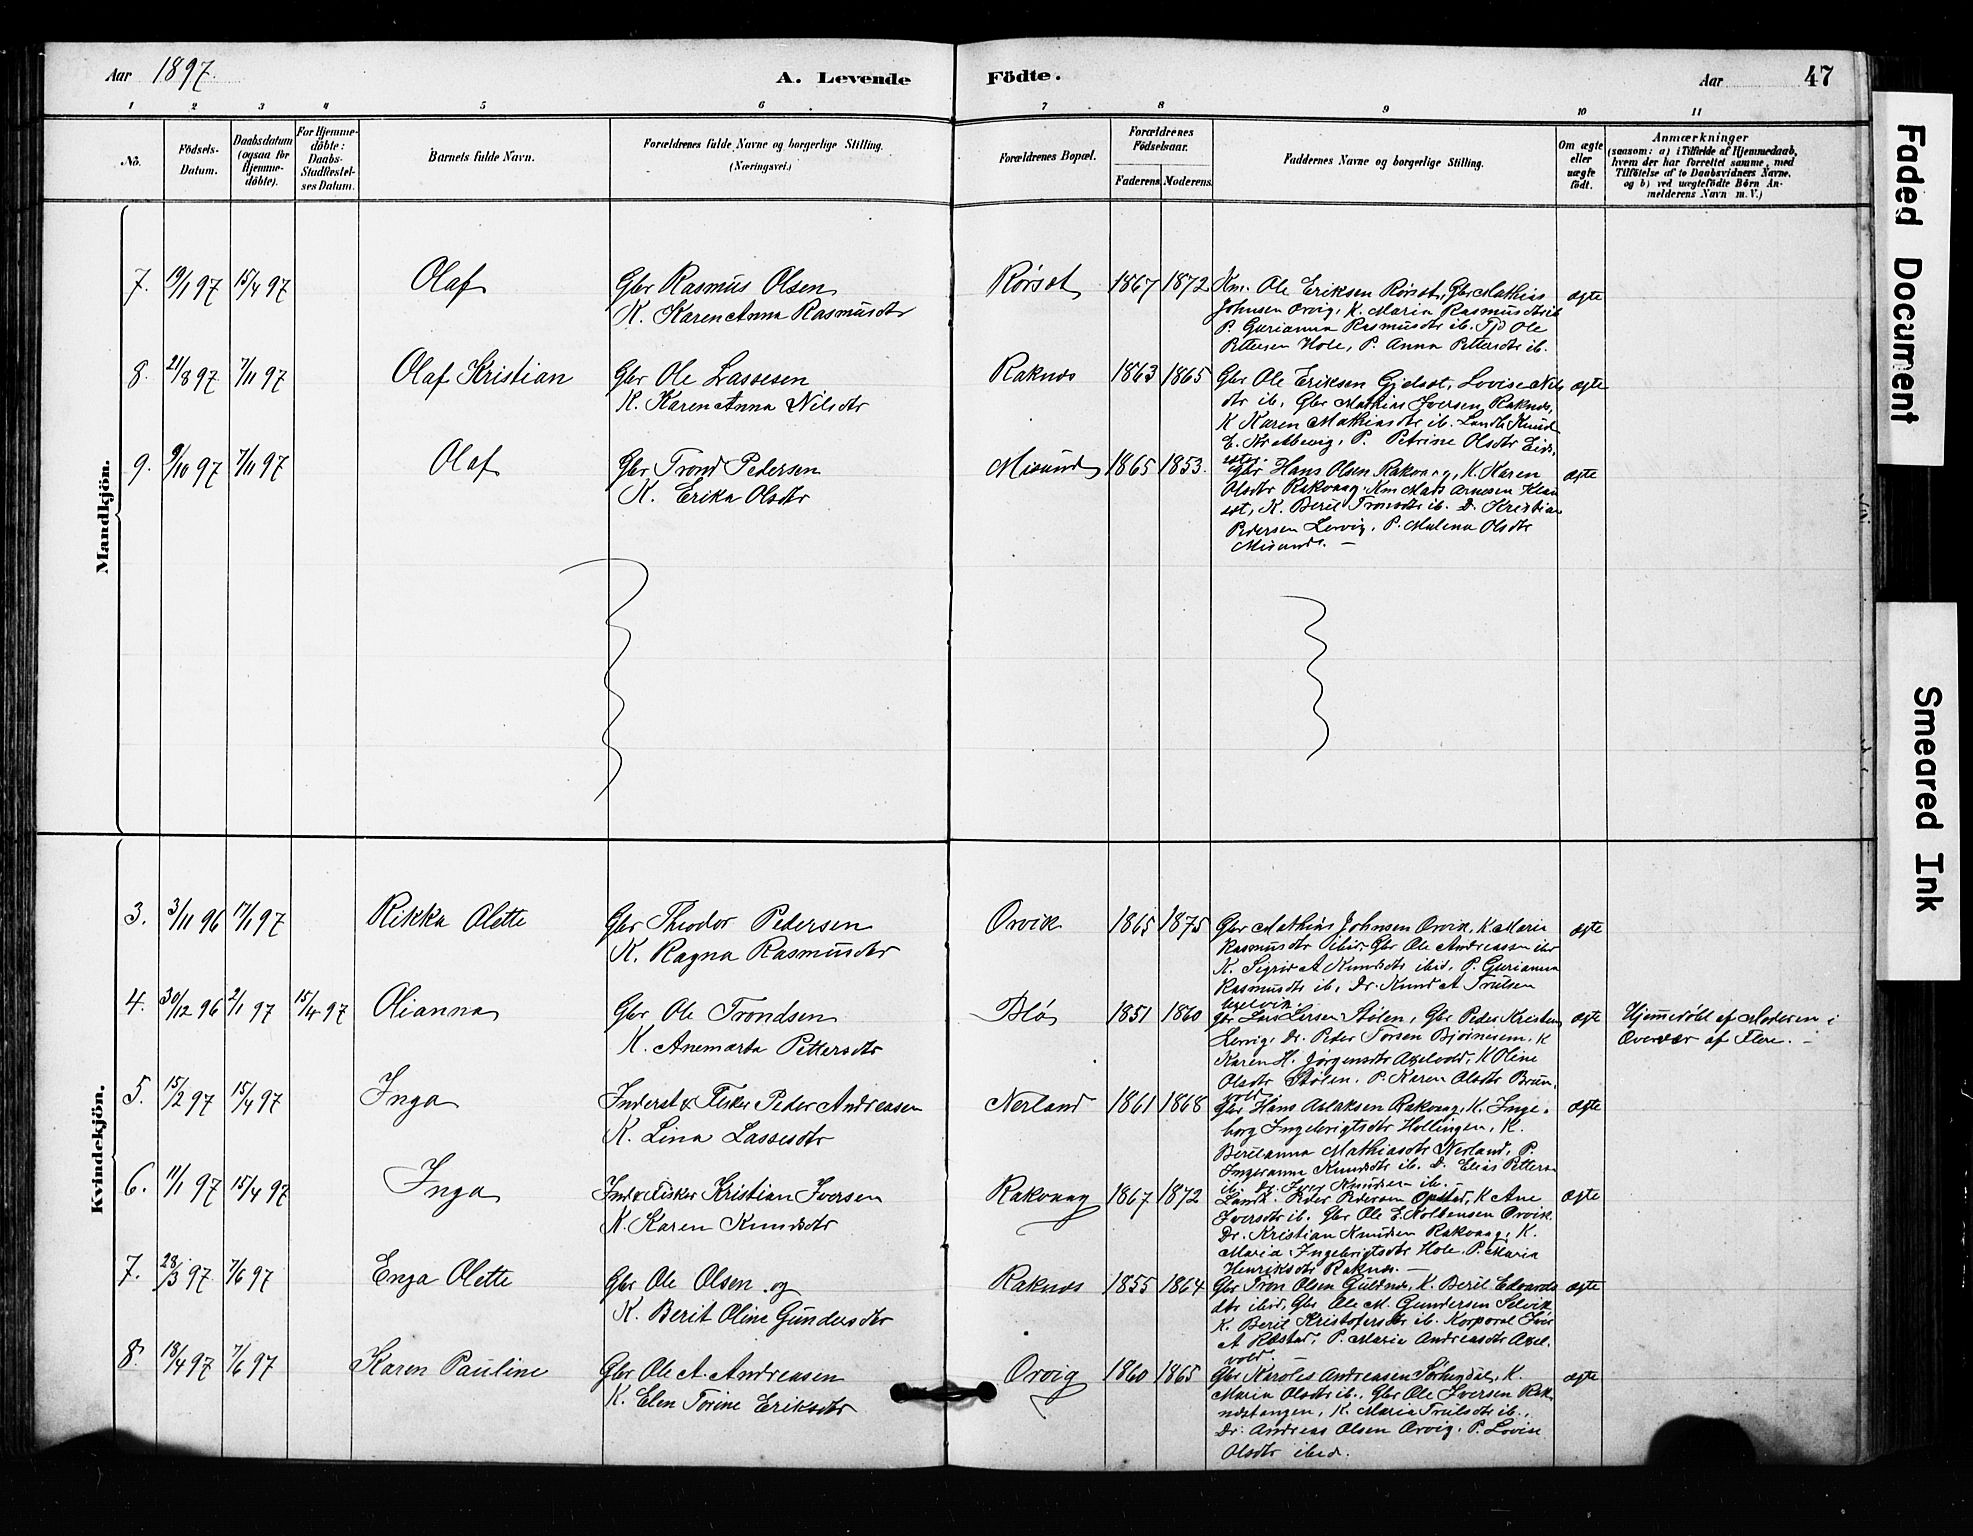 Aar 1897. A. Levende Födte. Aar 47
1 2 3 4 5 6 7 8 9 10 11
No. Födsels-Datum. Daabsdatum (ogsaa for Hjemme-döbte). For Hjemme-döbte: Daabs-Stadfæstel-ses Datum. Barnets fulde Navn. Forældrenes fulde Navne og borgerlige Stilling. (Næringsvei.) Forældrenes Bopæl. Forældrenes Födselsaar. Faderens Moderens. Faddernes Navne og borgerlige Stilling. Om ægte eller uægte födt. Anmærkninger (saasom: a) i Tilfælde af Hjemmedaab, hvem der har forrettet samme, med Tilföielse af to Daabsvidners Navne, og b) ved uægtefödte Börn An-melderens Navn m. V.)
Mandkjön.
7. 19/1 97 15/4 97 Olaf Gbr Rasmus Olsen Rørset 1867 1872 Km. Ole Eriksen Rørset, Gbr Mathias ægte
K. Karen Anna Rasmusdtr Johnsen Orvig, K. Maria Rasmusdtr ib
P. Gurianna Rasmusdtr ib. Tjd Ole
Pettersen Hole, P. Anna Pettersdtr ib.
8. 21/8 97 7/11 97 Olaf Kristian Gbr Ole Lassesen Raknes 1863 1865 Gbr Ole Eriksen Gjelset, Lovise Nils ægte
K. Karen Anna Nilsdtr dtr ib, Gbr Mathias Iversen, Raknes,
K Karen Mathiasdtr ib. Landh. Knud
E. P. Petrine Olsdtr
9. 9/10 97 7/11 97 Olaf Gbr Trond Pedersen Misund 1865 1853. Gbr Hans Olsen Rakvaag, K. Karen ægte
K. Erika Olsdtr Olsdtr Rakvaag. Km Mads Arnesen Klau
set, K. Beril Tronsdtr ib. D. Kristian
Pedersen Lervig, P. Malena Olsdtr
Misund. —
Kvindekjön.
3. 3/11 96 17/1 97 Rikka Olette Gbr Theodor Pedersen Orvik 1865 1875 Gbr Mathias Johnsen Orvik, K Maria ægte
K. Ragna Rasmusdtr Rasmusdtr ibid, Gbr Ole Andreassen ibd
K. Sigrid A Knudsdtr ibid, P. Gurianna
Rasmusdtr ib, Dr. Knud A Trulsen
4. 30/12 96 2/1 97 15/4 97 Olianna Gbr Ole Trondsen Blø 1851 1860 Gbr Lars Larsen Stølen, Gbr Peder Kristens ægte Hjemmedöbt af Moderen i
K. Anemarta Pettersdtr Lervig, Dr. Peder Torsen Bjørnerem, K Overvær af Flere. —
Karen H. Jørgensdtr Axelvold, K Oline
Olsdtr Stølen. P. Karen Olsdtr Brun-
vold
5. 15/2 97 15/4 97 Inga Inderst & Fisker Peder Andreasen Nerland 1861 1868 Gbr Hans Aslaksen Rakvaag, K. Inge- ægte
K. Lina Lassesdtr borg Ingebrigtsdtr Hollingen, K.
Berilanna Mathiasdtr Nerland, P.
Ingeranna Knudsdtr ib. D. Elias Petters
ib. Dr. Iver Knudsen ib.
6. 11/1 97 15/4 97 Inga Ind & Fisker Kristian Iversen Rakvaag 1867 1872 Landh. Peder Pedersen Opstad, K Ane ægte
K. Karen Knudsdtr Iversdtr ib. Gbr Ole E. Kolbensen Orvik.
Dr. Kristian Knudsen Rakvaag, K.
Maria Ingebrigtsdtr Hole. P. Maria
Henriksdtr Raknes. —
7. 28/3 97 7/6 97 Enga Olette Gbr Ole Olsen og Raknes 1855 1864 Gbr Tron Olsen Guldnes, K. Beril Edvards ægte
K. Berit Oline Gundersdtr dtr ibid, Gbr Ole M. Gundersen Selvik
K. Beril Kristofersdtr ib. Korporal Iver
A Røstad, P. Maria Andreasdtr Axel-
vold. —
8. 18/4 97 7/6 97 Karen Pauline Gbr Ole A. Andreasen Orvig 1860 1865 Gbr Karoles Andreasen K. ægte
K. Elen Torine Eriksdtr Maria Olsdtr ib., Gbr Ole Iversen Rak
nestangen, K. Maria Trulsdtr ib.,
Dr. Andreas Olsen Orvig. P. Lovise
Olsdtr ibid.
Faded Document
Smeared Ink